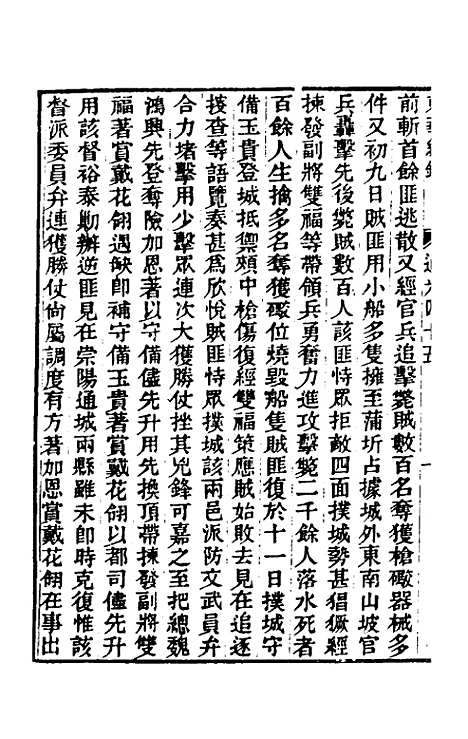 前斬首餘匪逃散又經官兵追擊斃賊數百名奪獲槍礮器械多
件又初九日賊匪用小船多隻擁至蒲圻占據城外東南山坡官
兵轟擊先後斃賊數百人該匪恃眾拒敵四面撲城勢甚猖獗經
揀發副將雙福等帶領兵勇奮力進攻擊斃二千餘人落水死者
百餘人生擒多名奪獲礮位燒毀船隻賊匪復於十一日撲城守
備玉貴登城抵禦頰中槍傷復經雙福策應賊始敗去見在追逐
搜查等語覽奏甚為欣悅賊匪恃眾撲城該兩邑派防文武員弁
合力堵擊用少擊眾連次大獲勝仗挫其兇鋒可嘉之至把總魏
鴻興先登奪險加恩著以守備儘先升用先換頂帶揀發副將雙
福著賞戴花翎遇缺即補守備玉貴著賞戴花翎以都司儘先升
用該督裕泰勦辦逆匪見在崇陽通城兩縣雖未即時克復惟該
督派委員弁連獲勝仗尙屬調度有方著加恩賞戴花翎在事出